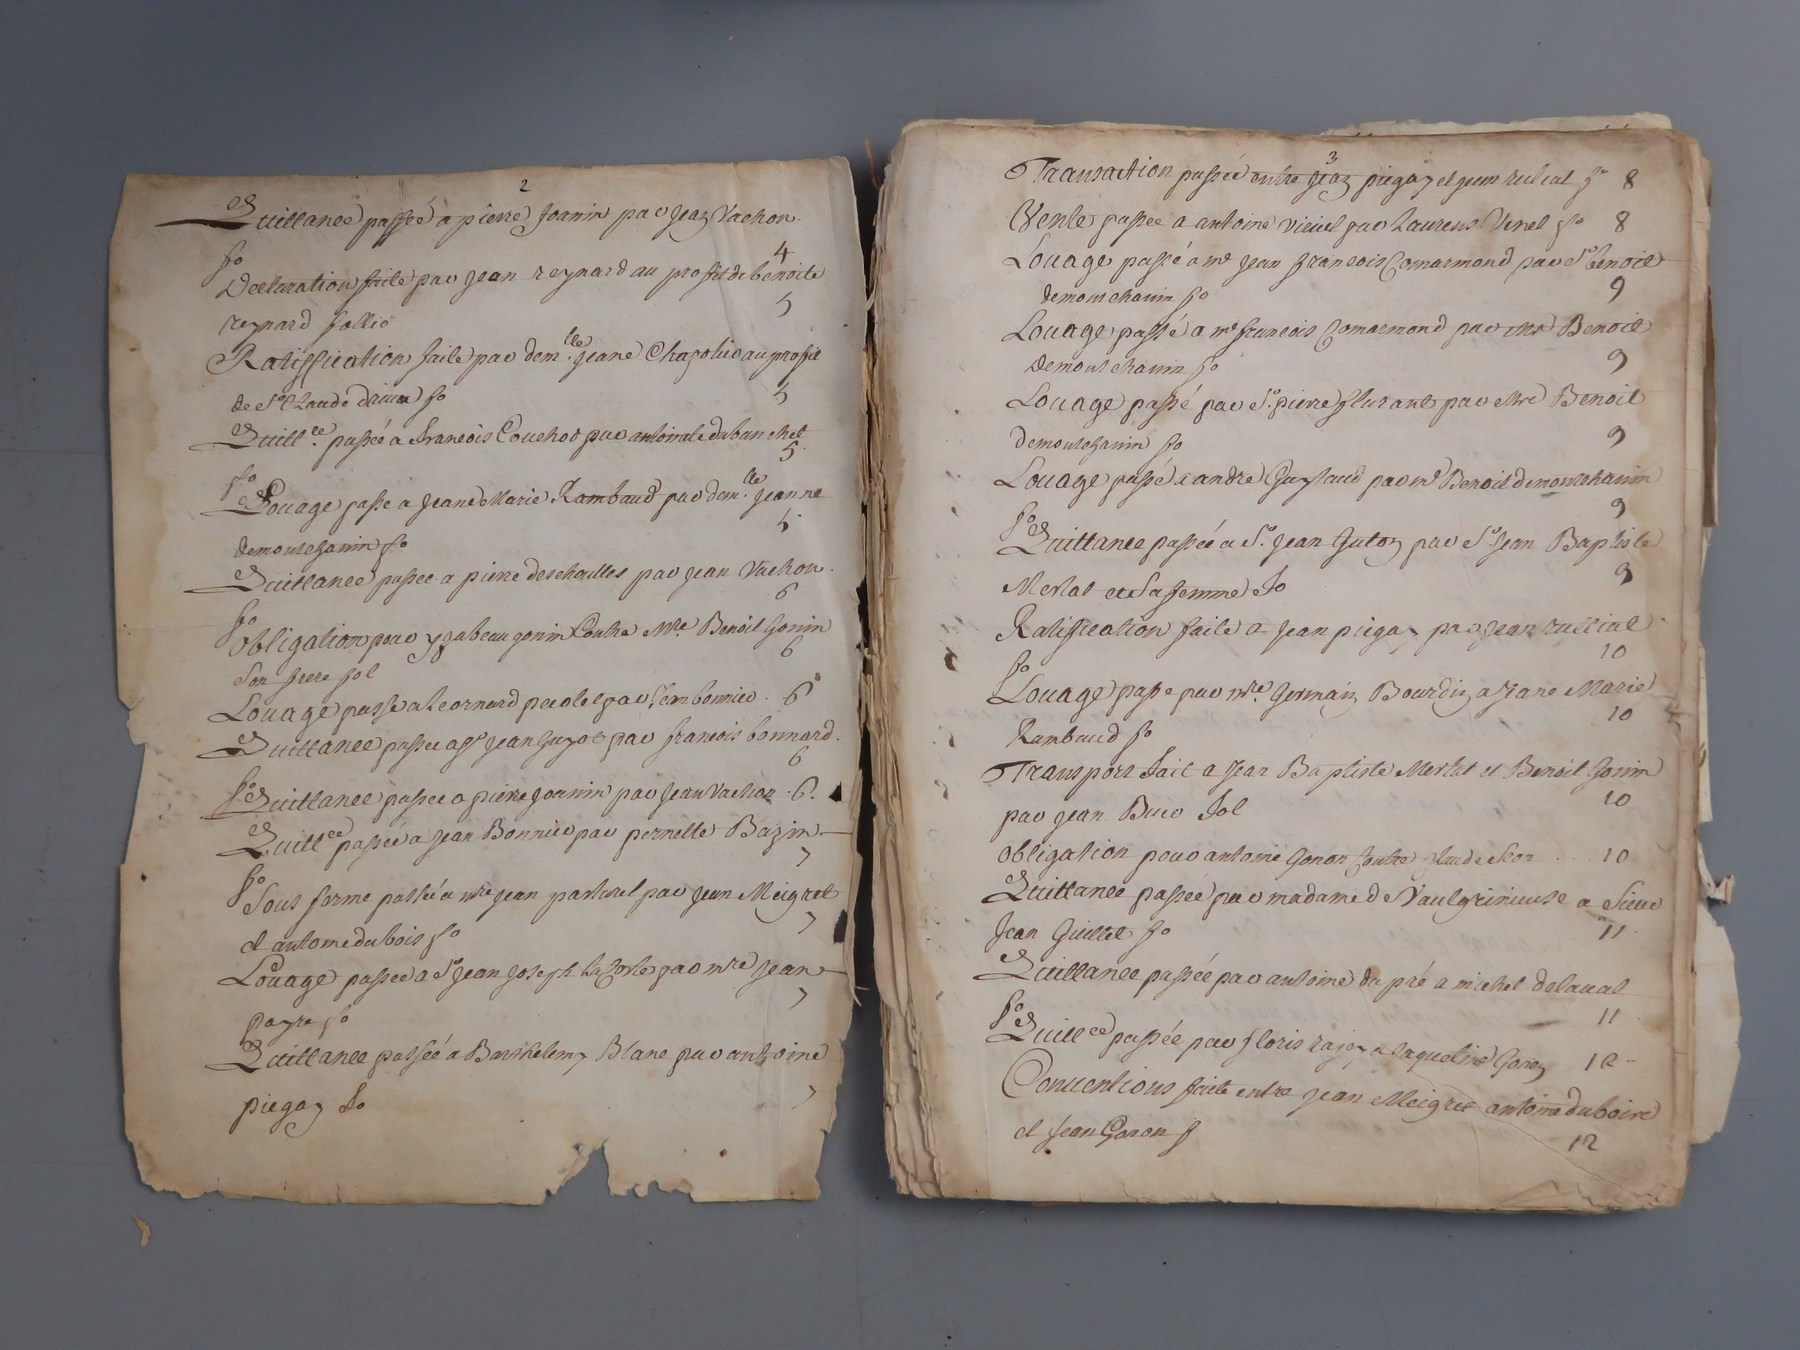 2
Quittance passéé a pierre Joanin par Jean Vachon
fo 4
Declaration faite par Jean reynard au profit de benoite
reynard follio 5
Ratiffication faite par dem.lle Jeane au proffit
de Sr Claude fo 5
Quitt.ce passéé a francois Couchot par antoinete dubanchet
fo 5
Louage passe a Jeane Marie Rambaud par dem.lle Jeanne
demontchanin fo 5
Quittance passee a pierre deschailles par Jean Vachon
fo 6
Obligation pour yzabeau gonin Contre Mre Benoit Gonin
Son frere fol 6
Louage passe a Leornard par bonnier 6
Quittance passee a Sr Jean Guyot par francois bonnard
6
fo Quittance passee a pierre Joanin par Jean Vachon 6
Quittce passéé a Jean Bonnier par pernette Bazin
fo 7
Sous ferme passéé a mre Jean par Jean Meigret
et antoine dubois fo 7
Louage passee a Sr Jean Joseph par mre Jean
payre fo 7
Quittance passéé a Barthelemy Blanc par antoine
piegay fo 7
3
Transaction passéé entre Jean piegay et Jean rulliat fo 8
Vente passee a antoine par Laurens fo 8
Louage passé a mr Jean francois Comarmond par Sr benoit
demontchanin fo 9
Louage passé a mr francois Comarmond par mr Benoit
demontchanin fo 9
Louage passé par Sr pierre flurant par Mre Benoit
demontchanin fo 9
Louage passé a andre par mr Benoit demontchanin
fo 9
Quittance passéé a Sr Jean Guyot par Sr Jean Baptiste
Merlat et Sa femme fo 9
Ratiffication faite a Jean piegay par Jean rulliat
fo 10
Louage passe par mre Germain Bourdin a Jane Marie
Rambaud fo 10
Transport fait a Jean Baptiste Merlat et Benoit Gonin
par Jean Buer fol 10
Obligation pour antoine Gonon Contre Claude 10
Quittance passéé par madame de Vaulgrineuse a Sieur
Jean Guillet fo 11
Quittance passéé par antoine du pré a michel delaval
fo 11
Quittce passéé par floris a Jaqueline Goron 12
Conventions faite entre Jean Meigret antoine duboire
et Jean Goron f 12